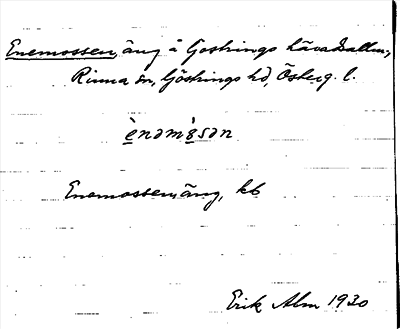 Enemossen, äng å Göstrings häradsallm.,
Rinna sn, Göstrings hd, Österg. l.
ènəmòsən
Enemossen, äng, kb
Erik Alm 1930